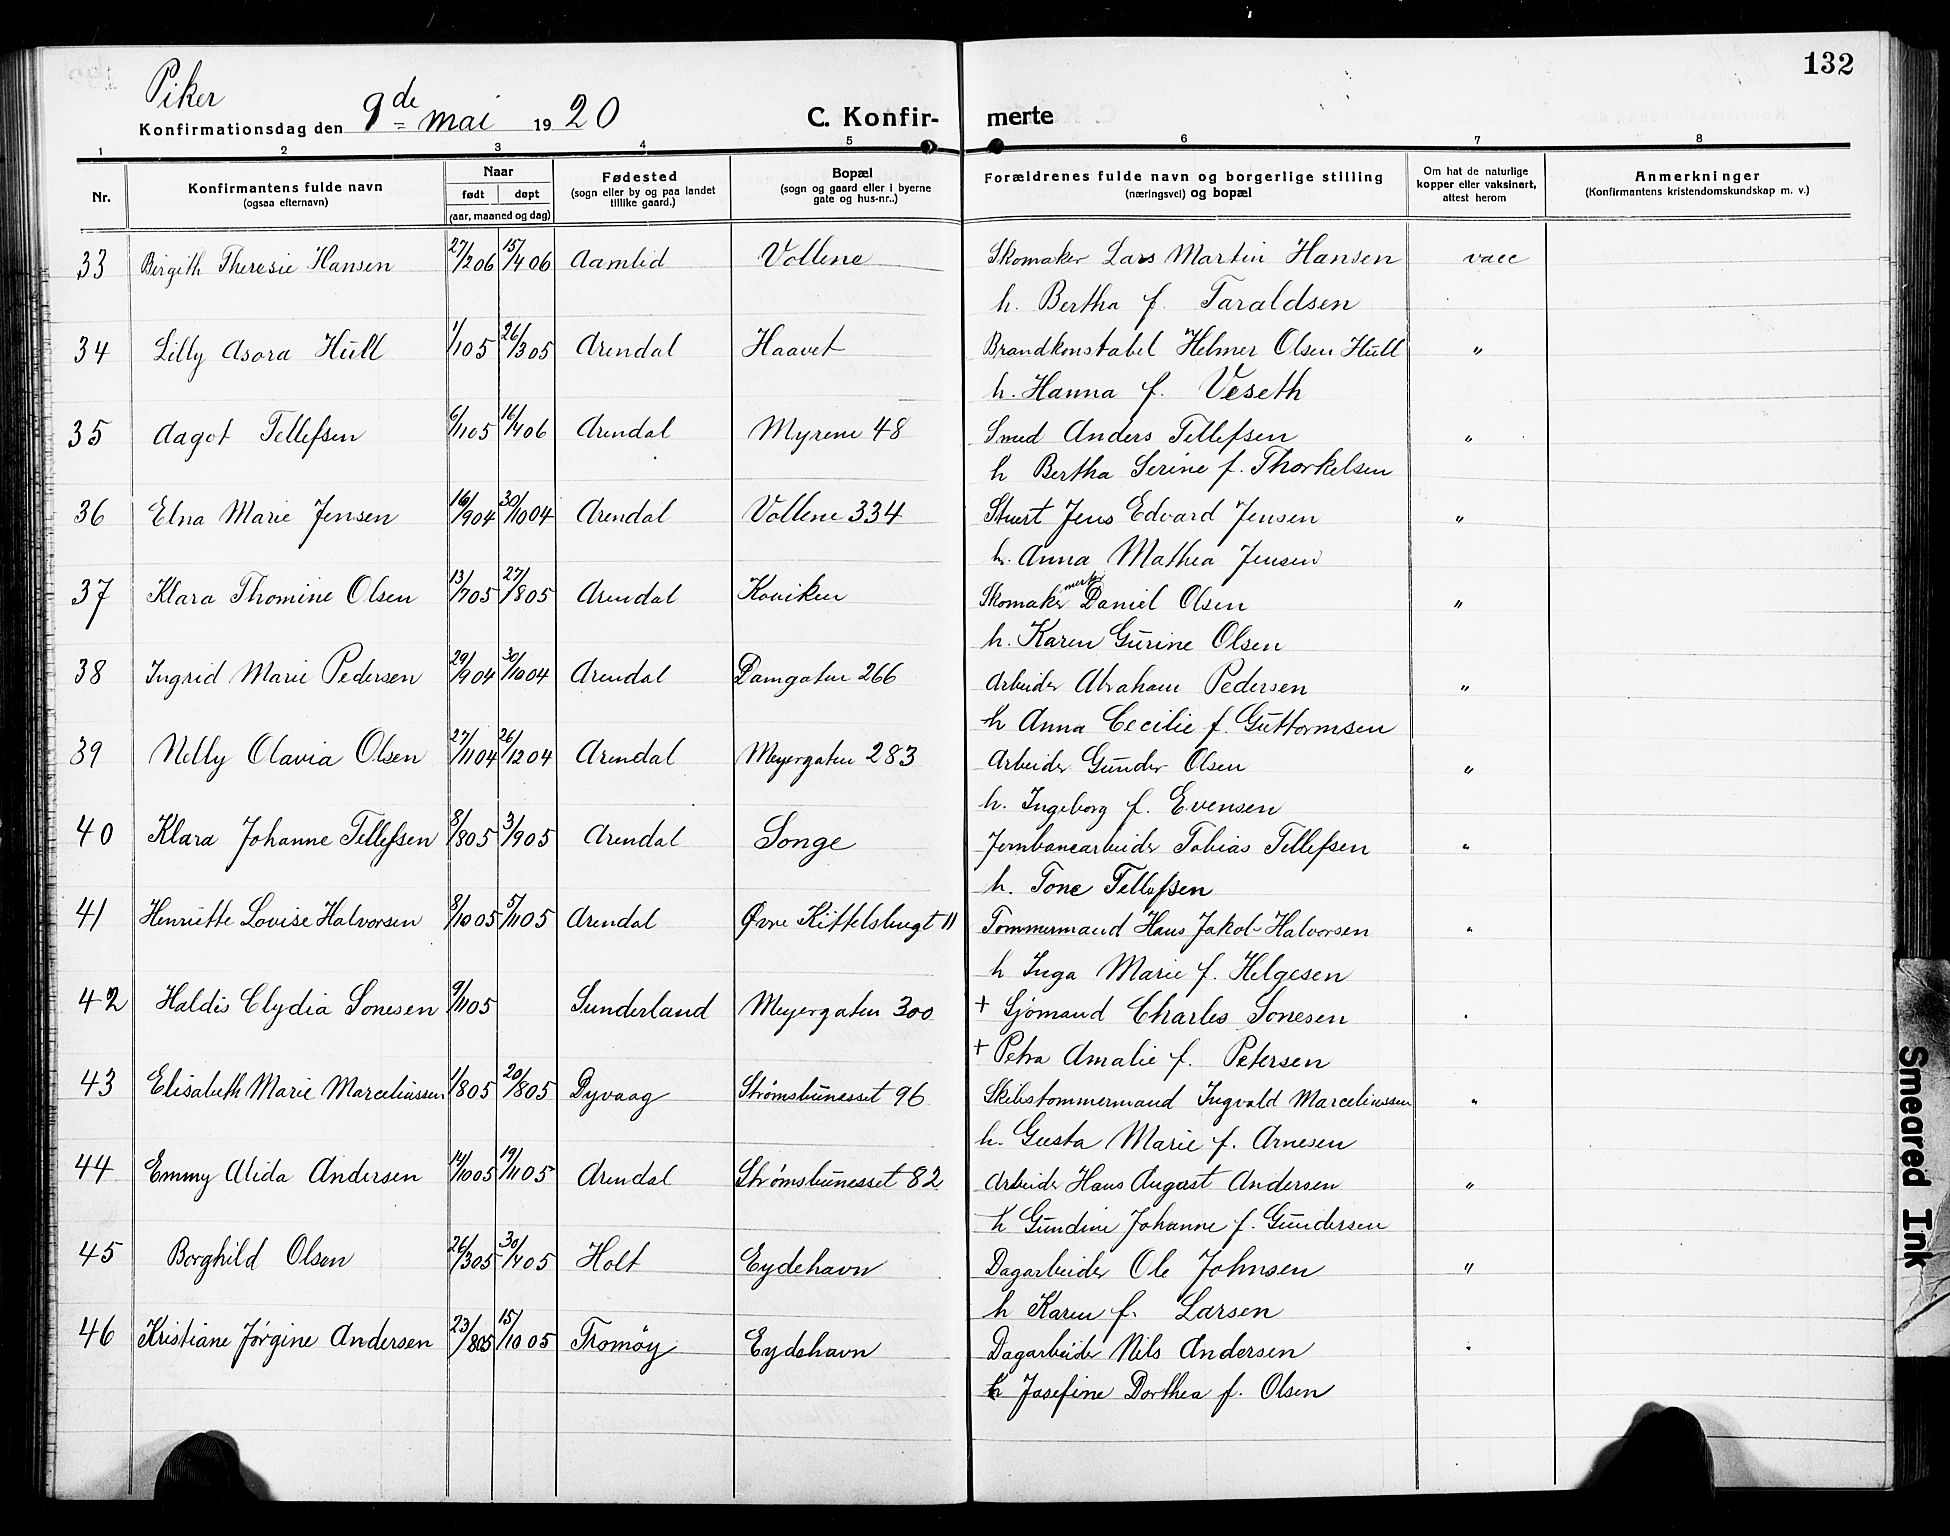 132
Piker
Konfirmationsdag den 9de mai 1920
C. Konfirmerte
1 2 3 4 5 6 7 8
Nr.
Konfirmantens fulde navn
(ogsaa efternavn)
Naar
født døpt
(aar, maaned og dag)
Fødested
(sogn eller by og paa landet
tillike gaard.)
Bopæl
(sogn og gaard eller i byerne
gate og hus-nr..)
Forældrenes fulde navn og borgerlige stilling
(næringsvei) og bopæl
Om hat de naturlige
kopper eller vaksinert,
attest herom
Anmerkninger
(Konfirmantens kristendomskundskap m. v.)
33 Birgith Theresie Hansen 27/2 06 15/4 06 Aamlid Vollene Skomaker Lars Martin Hansen vacc
h. Bertha f. Taraldsen
34 Lilly Asora Hull 1/1 05 26/3 05 Arendal Haavet Brandkonstabel Helmer Olsen Hull "
h. Hanna f. Veseth
35 Aagot Tellefsen 6/1 05 16/4 06 Arendal Myrene 48 Smed Anders Tellefsen "
h Bertha Serine f. Thorkelsen
36 Elna Marie Jensen 16/9 04 30/10 04 Arendal Vollene 334 Stuert Jens Edvard Jensen "
h. Anna Mathea Jensen
37 Klara Thomine Olsen 13/7 05 27/8 05 Arendal Koviken Skomaker Daniel Olsen "
h. Karen Gurine Olsen
38 Ingrid Marie Pedersen 29/9 04 30/10 04 Arendal Damgaten 266 Arbeider Abraham Pedersen "
h Anna Cecilie f. Guttormsen
39 Nelly Olavia Olsen 27/11 04 26/12 04 Arendal Meyergaten 283 Arbeider Gunder Olsen "
h. Ingeborg f. Evensen
40 Klara Johanne Tellefsen 8/8 05 3/9 05 Arendal Songe Jernbanearbeider Tobias Tellefsen "
h. Tone Tellefsen
41 Henriette Lovise Halvorsen 8/10 05 5/11 05 Arendal Øvre Kittelsbugt 11 Tømmermand Hans Jakob Halvorsen "
h Inga Marie f. Helgesen
42 Haldis Clydia Sonesen 9/11 05 Sunderland Meyergaten 300 + Sjømand Charles Sonesen "
+ Petra Amalie f. Petersen
43 Elisabeth Marie Marceliussen 1/8 05 20/8 05 Dyvaag Strømsbunesset 96 Skibstømmermand Ingvald Marceliussen "
h. Gusta Marie f. Arnesen
44 Emmy Alida Andersen 14/10 05 19/11 05 Arendal Strømsbunesset 82 Arbeider Hans August Andersen "
h Gundine Johanne f. Gundersen
45 Borghild Olsen 26/3 05 30/4 05 Holt Eydehavn Dagarbeider Ole Johnsen "
h Karen f. Larsen
46 Kristiane Jørgine Andersen 23/8 05 15/10 05 Tromøy Eydehavn Dagarbeider Nils Andersen "
h Josefine Dorthea f. Olsen
Smeared Ink